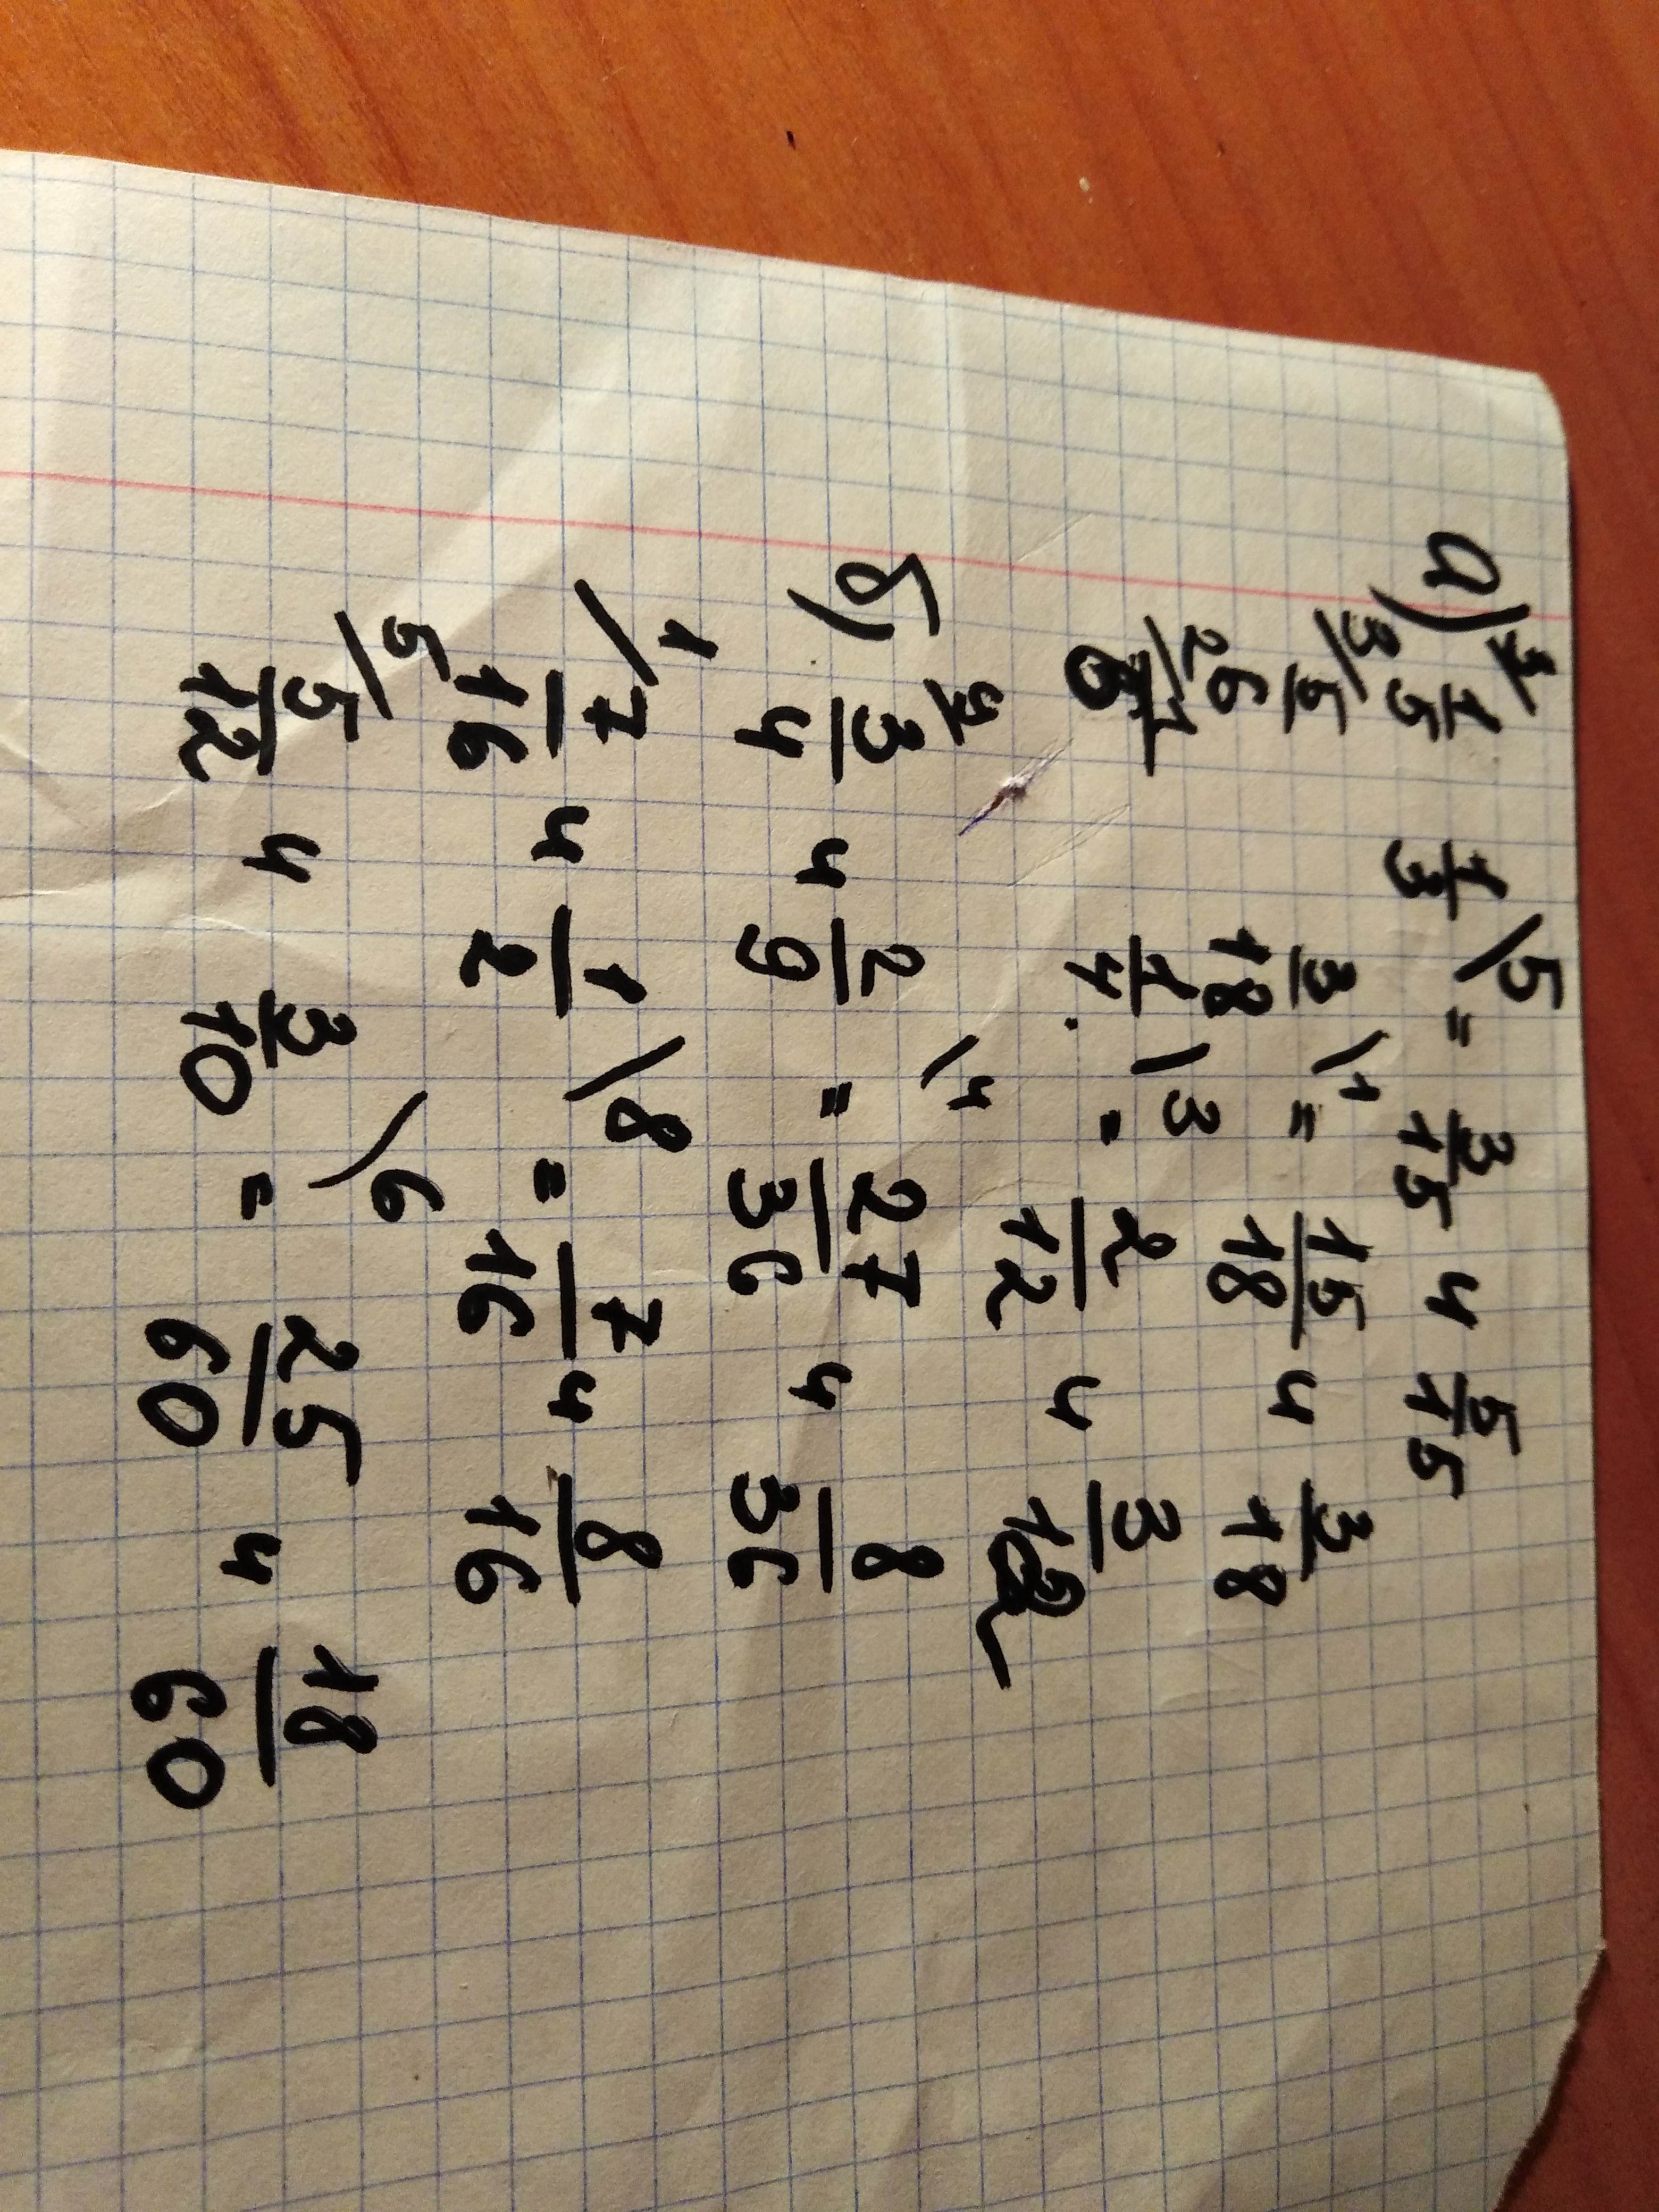 а) 3/ 1/5 1/3 \5 = 3/15 и 5/15
3/ 5/6 3/18 \1 = 15/18 и 3/18
2/ 1/6 1/4 \3 = 2/12 и 3/12
б) 3/4 и 2/9 \4 = 27/36 и 8/36
1/ 7/16 и 1/2 \8 = 7/16 и 8/16
5/ 5/12 и 3/10 \6 = 25/60 и 18/60